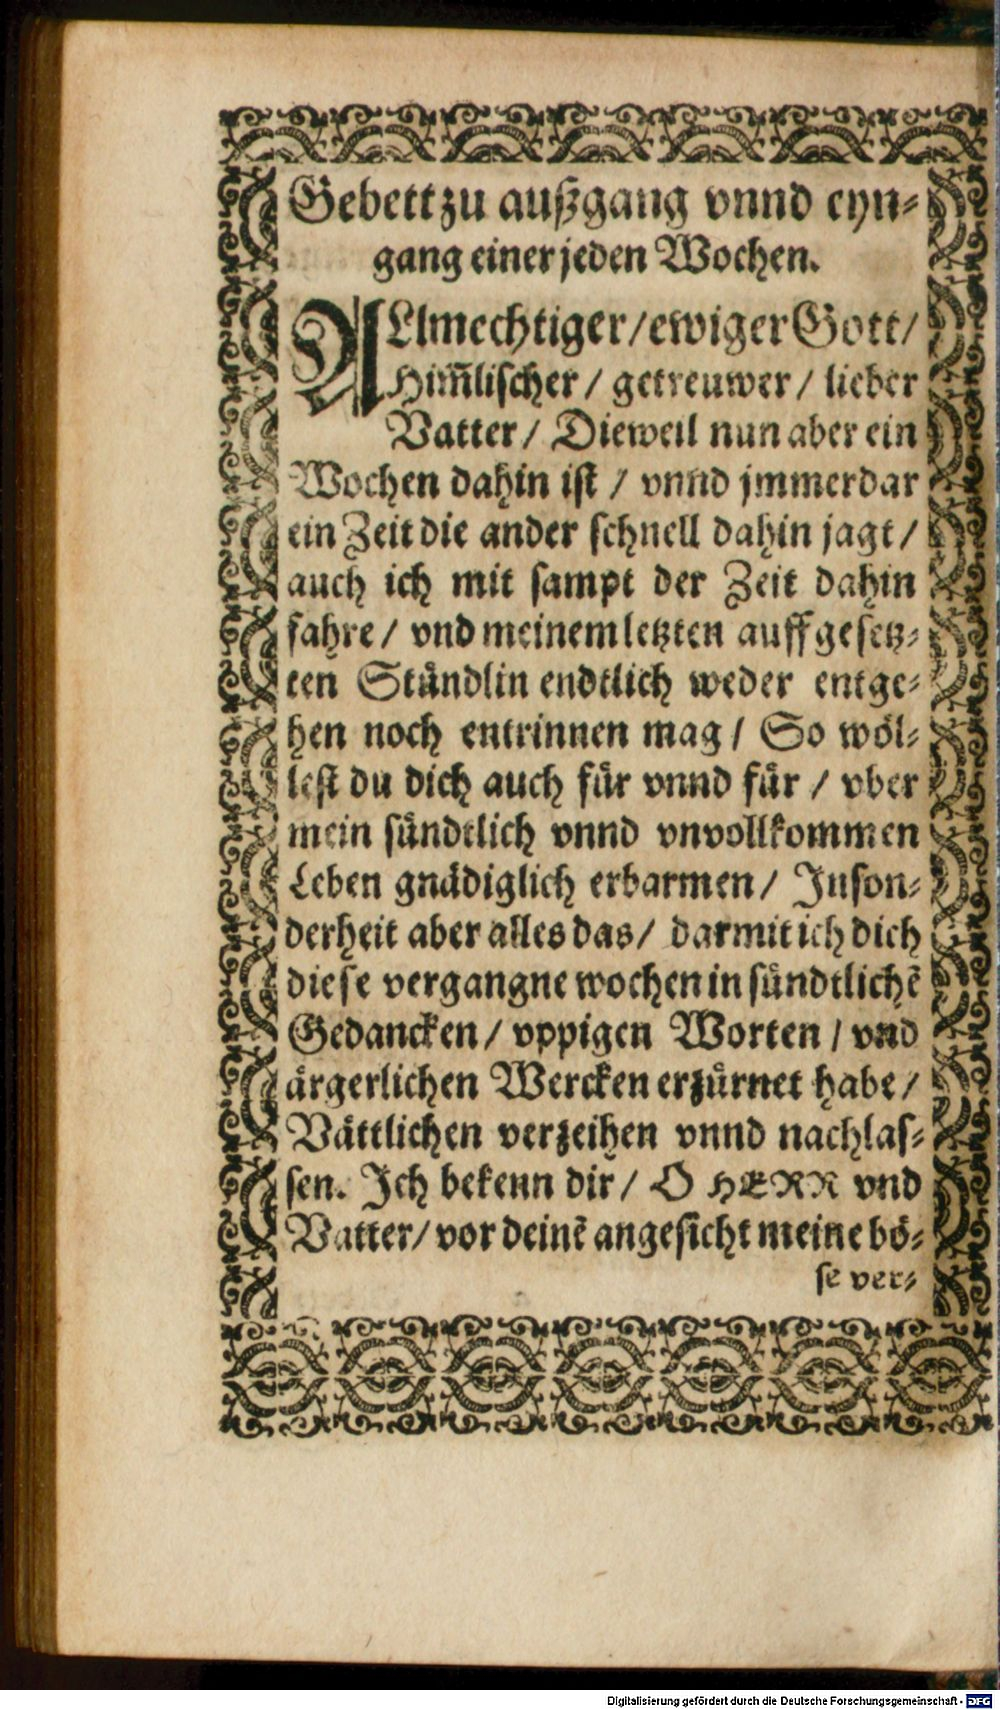 Gebett zu außgang vnnd eyn-
gang einer jeden Wochen.
ALlmechtiger/ ewiger Gott/
Him̃lischer/ getreuwer/ lieber
Vatter/ Dieweil nun aber ein
Wochen dahin ist/ vnnd jmmerdar
ein Zeit die ander schnell dahin jagt/
auch ich mit sampt der Zeit dahin
fahre/ vnd meinem letzten auffgesetz-
ten Stündlin endtlich weder entge-
hen noch entrinnen mag/ So wöl-
lest du dich auch für vnnd für/ vber
mein sündtlich vnnd vnvollkommen
Leben gnädiglich erbarmen/ Inson-
derheit aber alles das/ darmit ich dich
diese vergangne wochen in sündtlichē
Gedancken/ vppigen Worten/ vnd
ärgerlichen Wercken erzürnet habe/
Vättlichen verzeihen vnnd nachlas-
sen. Ich bekenn dir/ O HERR vnd
Vatter/ vor deinē angesicht meine bö-
se ver-
Digitalisierung gefördert durch die Deutsche Forschungsgemeinschaft - DFG